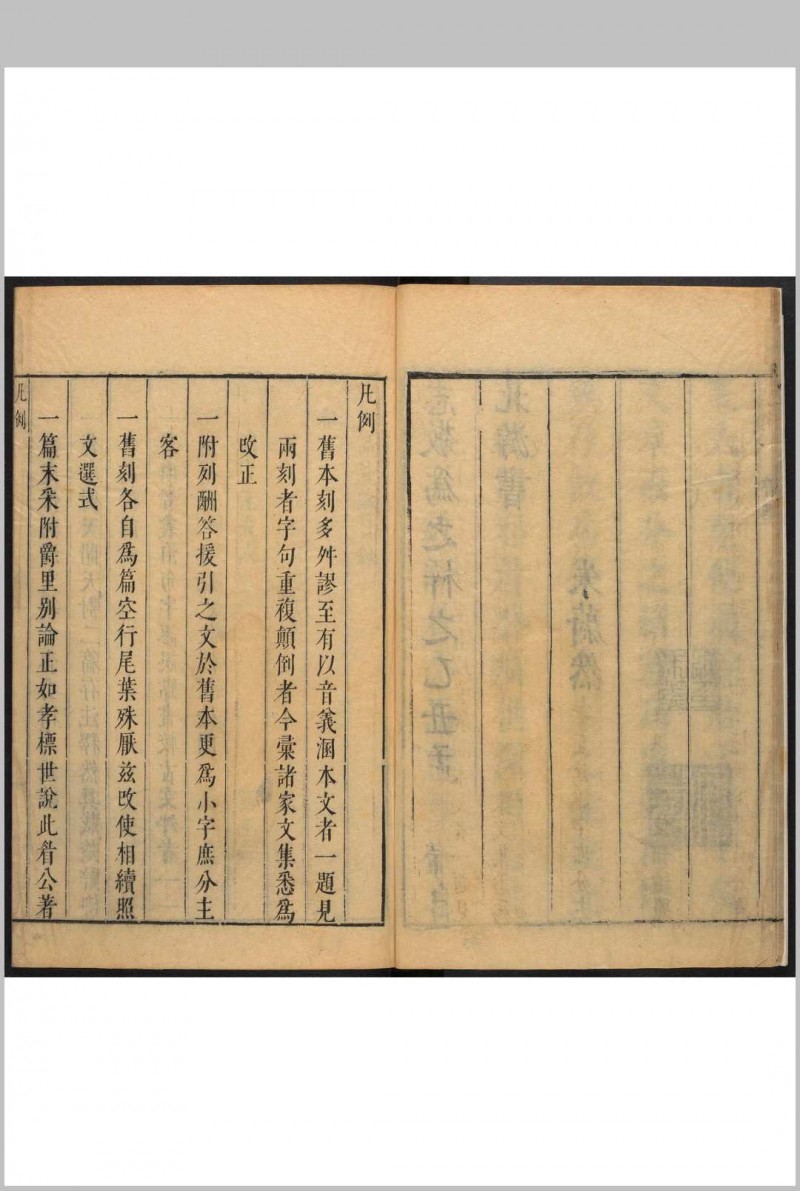 凡例
一舊本刻多舛謬至有以音義溷本文者一題見
兩刻者字句重複顛倒者今彙諸家文集悉爲
改正
一附列酬答援引之文於舊本更爲小字庶分主
客
一舊刻各自爲篇空行尾葉殊厭茲改使相續照
文選式
一篇末采附爵里别論正如孝標世說此昝公著
凡例